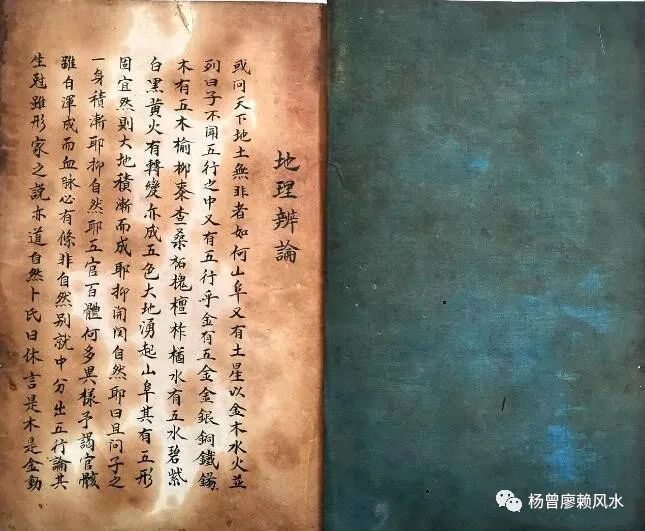 地理辨論
或問天下地土無非者如何山阜又有土星以金木水火並
列曰子不聞五行之中又有五行乎金有五金金銀銅鐵錫
木有五木榆柳棗查桑柘槐檀柞楢水有五水碧紫
白黑黄火有轉變亦成五色大地湧起山阜其有五形
固宜然則大地積漸而成耶抑開闵自然耶曰且問子之
一身積漸耶抑自然耶五官百體何多異様予謁官骸
雖自渾成而血脉必有條非自然别就中分出五行論其
生尅雖形家之説亦道自然卜氏曰休言是木是金動
杨曾廖赖风水